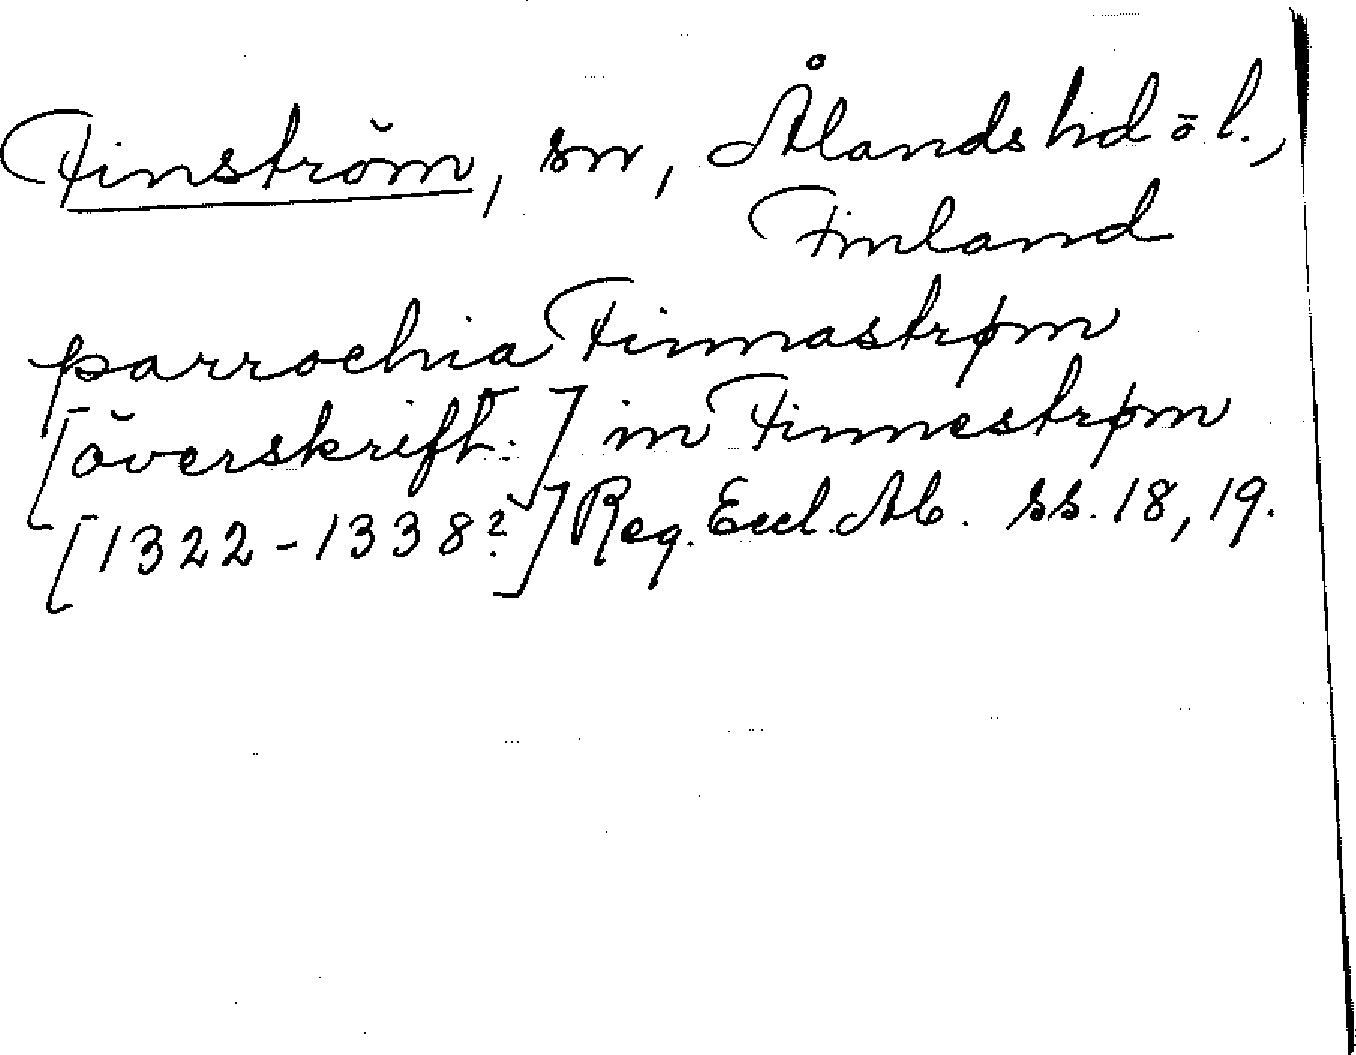 Finström, sn, Ålands hd o l.,
Finland
parrochia Finnastrøm
[överskrift:] in Finnestrøm
[1322-1338?] Reg. Eccl. Ab. ss. 18, 19.